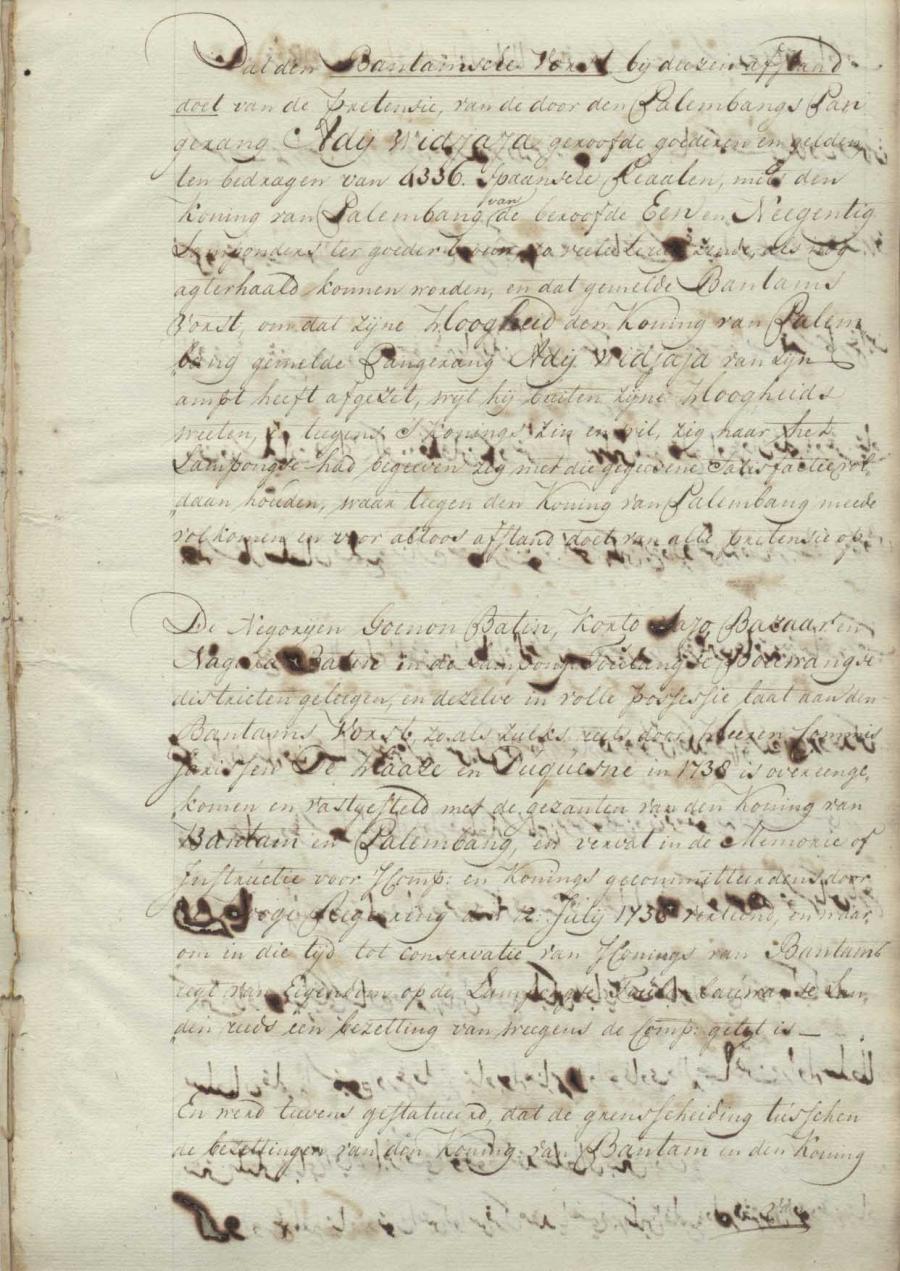 Dat den Bantamsche Vorst bij deezen afstand
doet van de pretensie, van de door den Palembangs Pan
gerang Adij Widjaja geroofde goederen en gelden
ten bedragen van 4336. Spaansche Reaalen, mits den
Koning van Palembang, van de beroofde Een en Neegentig
Lamponders ter goeder als nog
agterhaald konnen worden, en dat gemelde Bantams
Vorst, om dat zijne Hoogheid den Koning van Palem
bang gemelde Pangerang Adij Widjaja van zijn
ampt heeft afgezet, wijl hij buiten zijne Hoogheids
weeten, en teegens 's Konings zin en wil, zig naar het
Lampongse had begeeven zig met die gegeevene Satisfactie vol
daan houden, waar teegen den Koning van Palembang meede
volkomen en voor altoos afstand doet van alle pretensie op
De Negorijen Goenon Batin, Bazaar en
Nag in de Lampong Toulang Bouwangse
districten geleegen, en dezelve in volle possessie laat aan den
Bantams Vorst, zo als zulks reeds door Heeren Commis
sarissen De Haaze en Duquesne in 1738 is overeenge,
komen en vastgesteld met de gezanten van den Koning van
Bantam en Palembang, en vervat in de Memorie of
Instructie voor 'sComp: en Konings gecommitteerdens, door
Hoge Regeering den July 1738 verleend, en waar
om in die tijd tot conservatie van 's Konings van Bantams
regt van Eigendom op de Lampongse Lan,
den reeds een bezetting van weegens de Comp: gelegt is —
En werd teevens gestatueerd, dat de grensscheiding tusschen
de bezettingen van den Koning van Bantam en den Koning